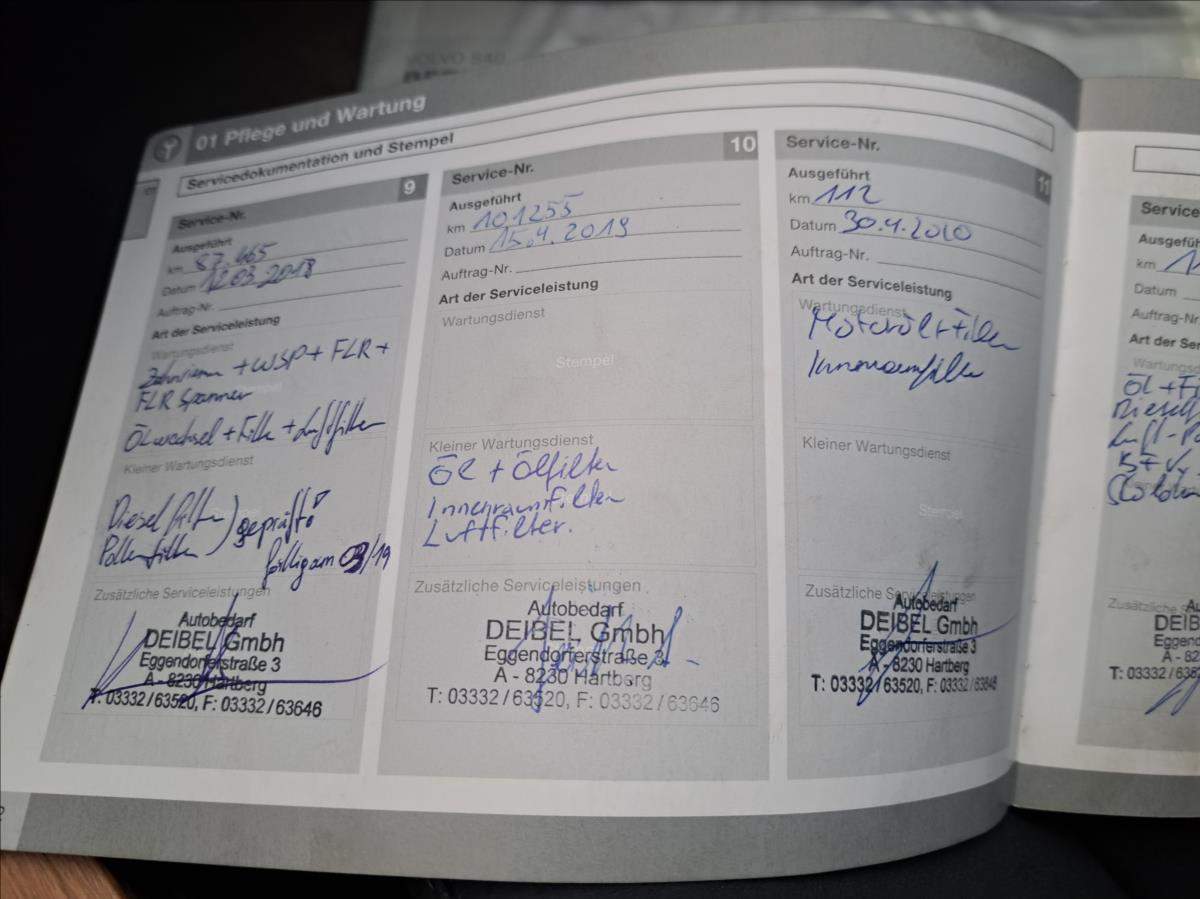 VOLVO S40
01 Pflege und Wartung
Servicedokumentation und Stempel
9
Service-Nr.
Ausgeführt
km 87.465
Datum 12.03.2018
Auftrag-Nr.
Art der Serviceleistung
Wartungsdienst
Zahnriemen + WSP + FLR +
FLR Spanner
Stempel
Ölwechsel + Filter + Luftfilter
Kleiner Wartungsdienst
Dieselfilter ) geprüft!
Pollenfilter fällig am 03/19
Zusätzliche Serviceleistungen
Autobedarf
DEIBEL Gmbh
Eggendorferstraße 3
A - 8230 Hartberg
T: 03332 / 63520, F: 03332 / 63646
10
Service-Nr.
Ausgeführt
km 101255
Datum 15.4.2019
Auftrag-Nr.
Art der Serviceleistung
Wartungsdienst
Stempel
Kleiner Wartungsdienst
Öl + Ölfilter
Innenraumfilter
Luftfilter.
Zusätzliche Serviceleistungen
Autobedarf
DEIBEL Gmbh
Eggendorferstraße 3
A - 8230 Hartberg
T: 03332 / 63520, F: 03332 / 63646
11
Service-Nr.
Ausgeführt
km 112
Datum 30.4.2020
Auftrag-Nr.
Art der Serviceleistung
Wartungsdienst
Motoröl + Filter
Innenraumfilter
Kleiner Wartungsdienst
Stempel
Zusätzliche Serviceleistungen
Autobedarf
DEIBEL Gmbh
Eggendorferstraße 3
A - 8230 Hartberg
T: 03332 / 63520, F: 03332 / 63646
Service
Ausgefüh
km
Datum
Auftrag-Nr
Art der Ser
Wartungs
Öl + Fi
Diesel
Luft-P
Kleiner
Zusätzliche
DEIB
Eggend
A - 82
T: 03332 / 635